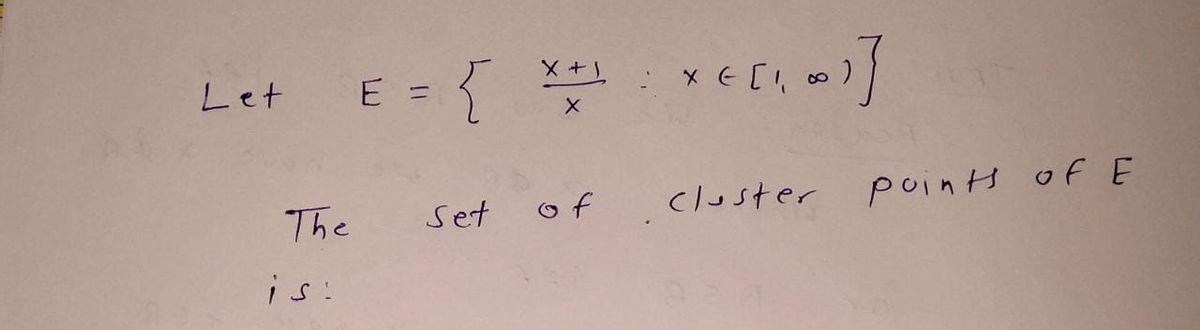 Let E = { x+1/x : x ∈ [1, ∞) }
The set of cluster points of E
is: